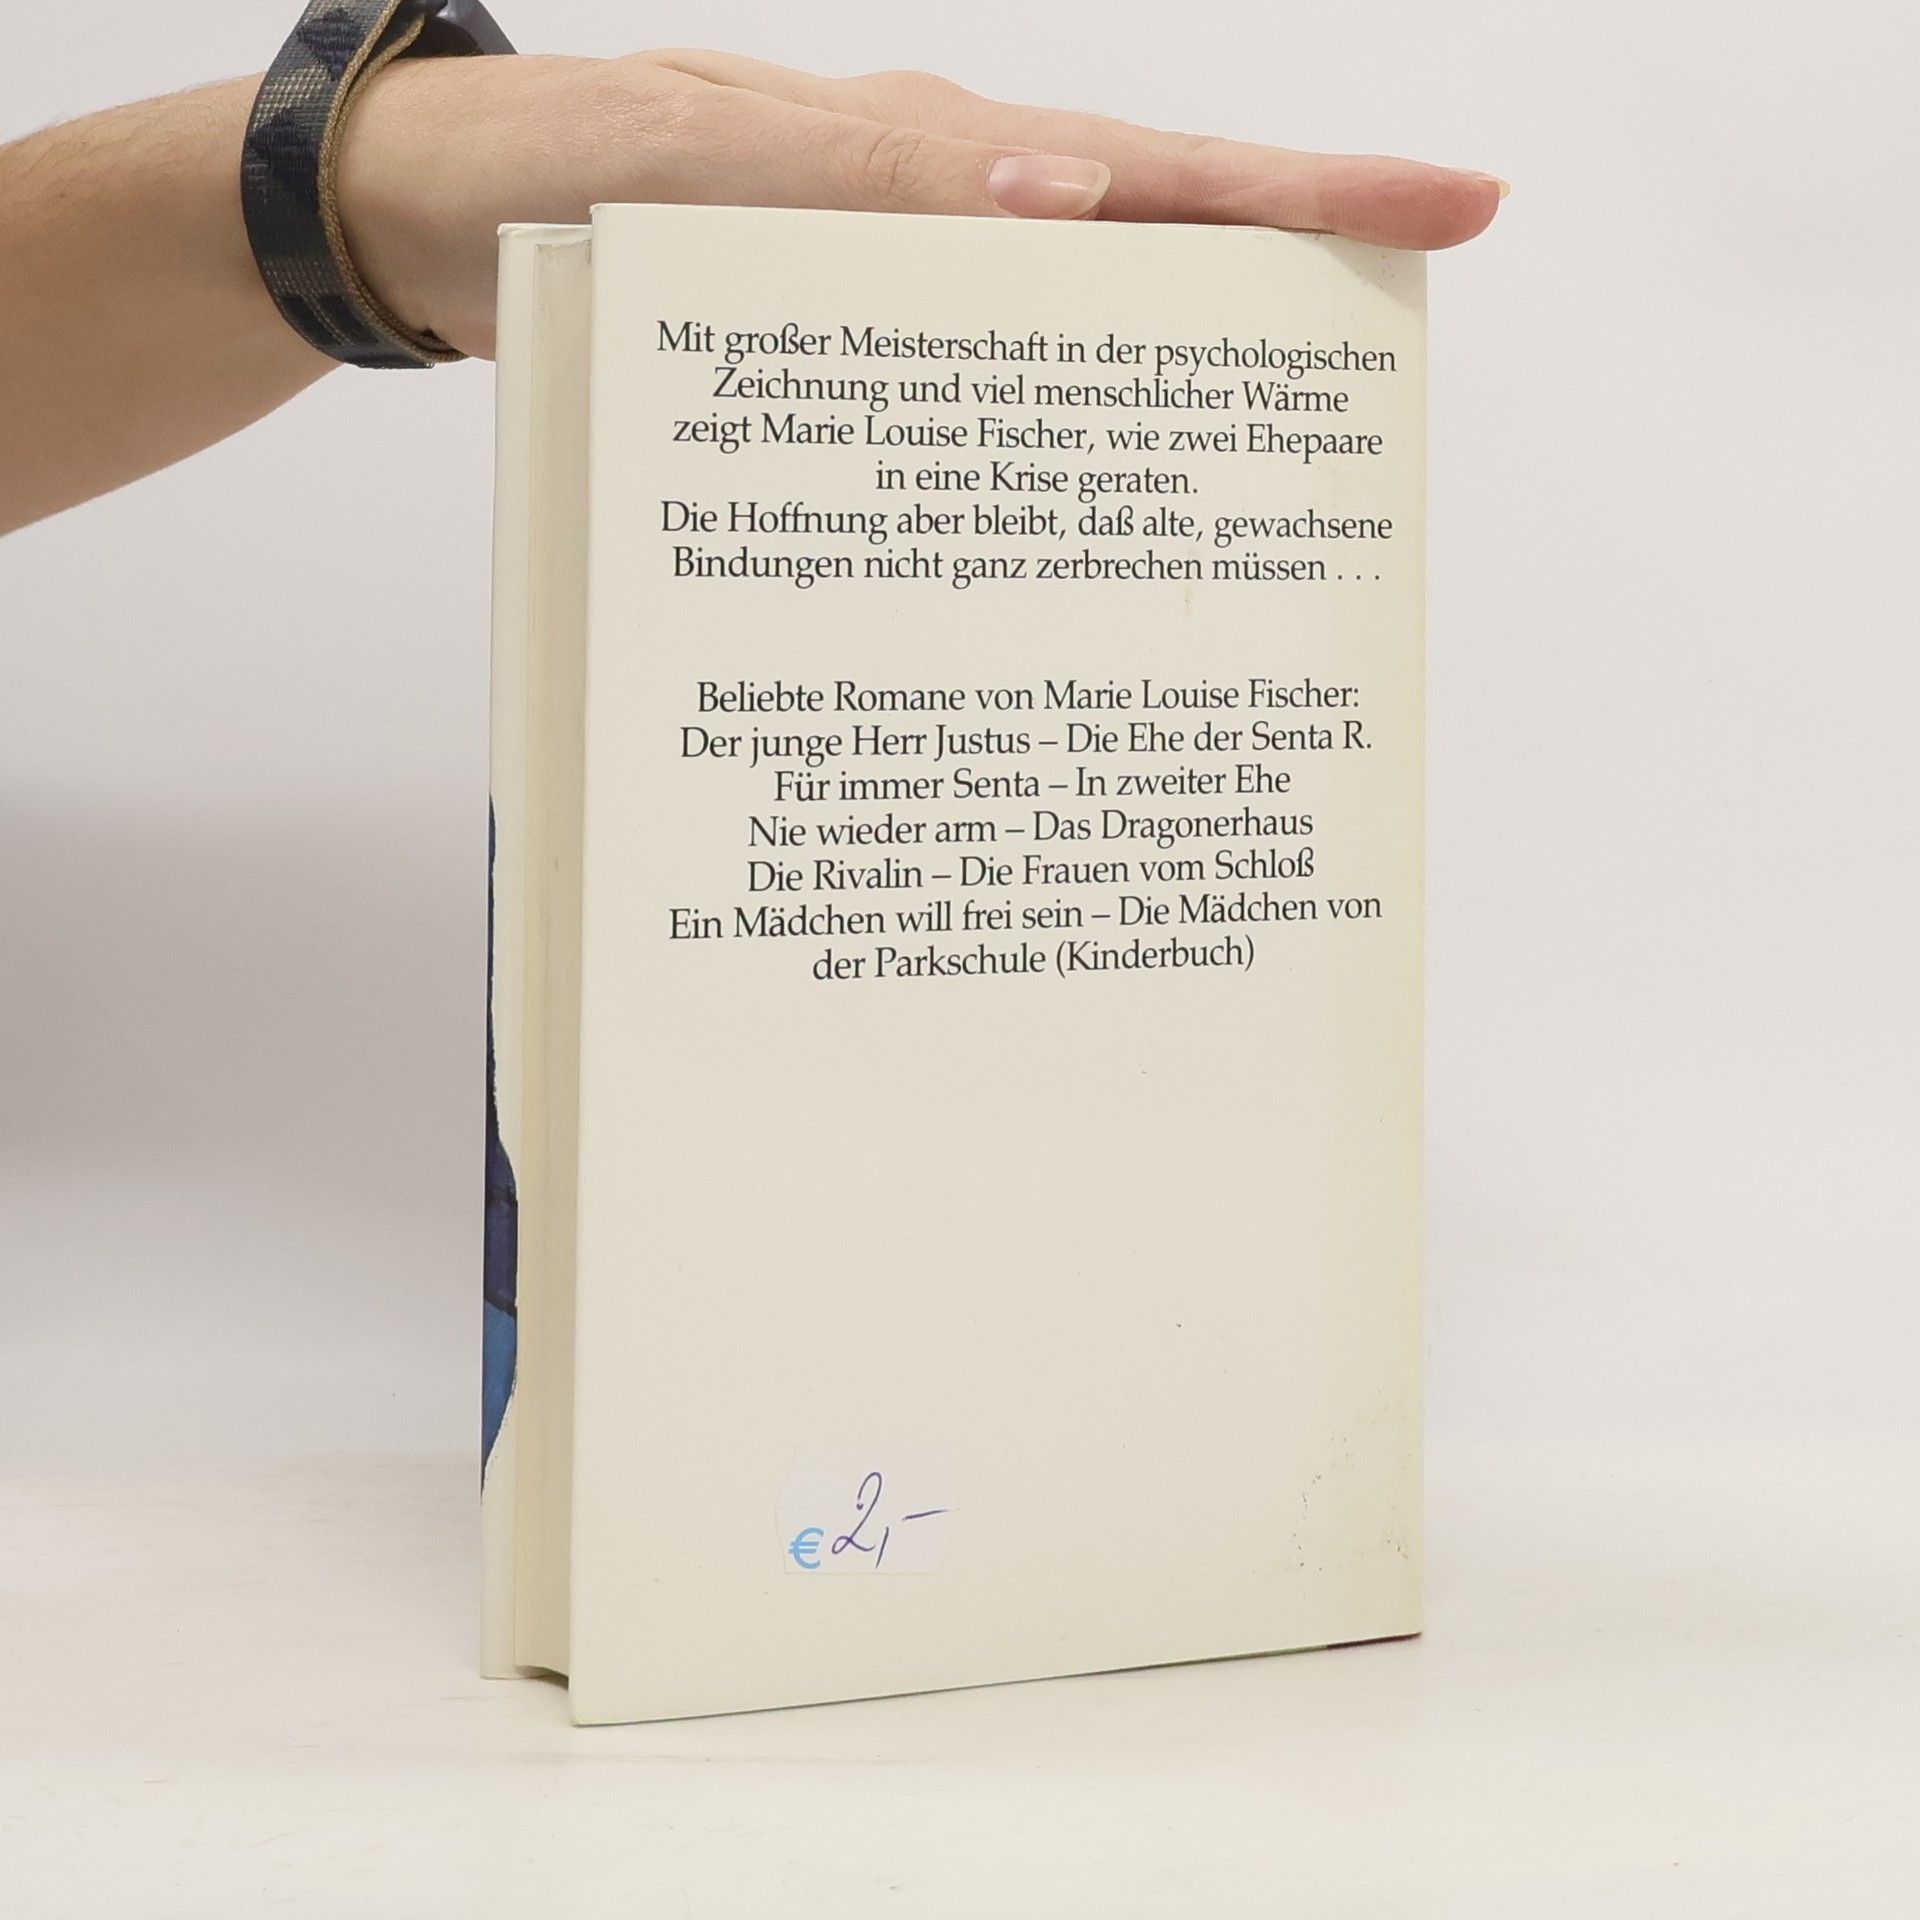 Mit großer Meisterschaft in der psychologischen
Zeichnung und viel menschlicher Wärme
zeigt Marie Louise Fischer, wie zwei Ehepaare
in eine Krise geraten.
Die Hoffnung aber bleibt, daß alte, gewachsene
Bindungen nicht ganz zerbrechen müssen . . .
Beliebte Romane von Marie Louise Fischer:
Der junge Herr Justus – Die Ehe der Senta R.
Für immer Senta – In zweiter Ehe
Nie wieder arm – Das Dragonerhaus
Die Rivalin – Die Frauen vom Schloß
Ein Mädchen will frei sein – Die Mädchen von
der Parkschule (Kinderbuch)
€ 2,–